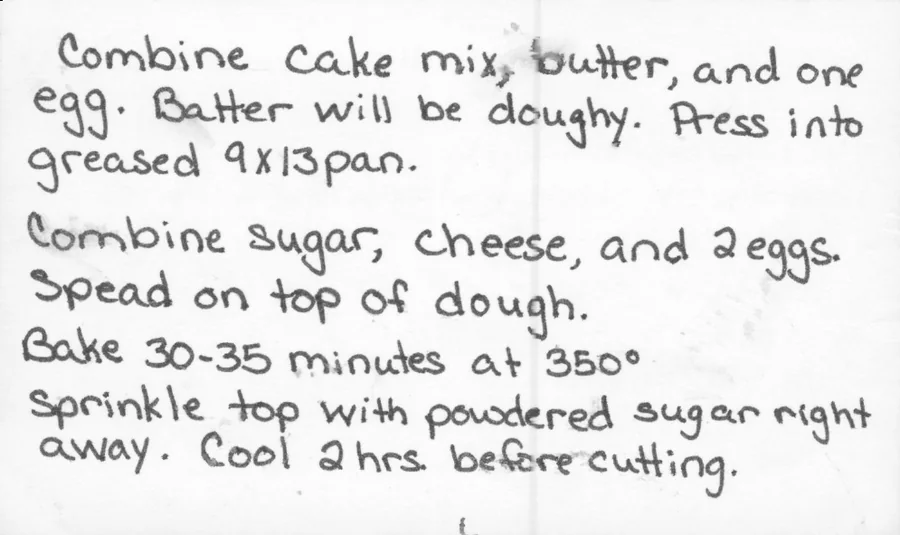 Combine cake mix, butter, and one
egg. Batter will be doughy. Press into
greased 9x13 pan.
Combine sugar, cheese, and 2 eggs.
Spead on top of dough.
Bake 30-35 minutes at 350°
Sprinkle top with powdered sugar right
away. Cool 2 hrs. before cutting.